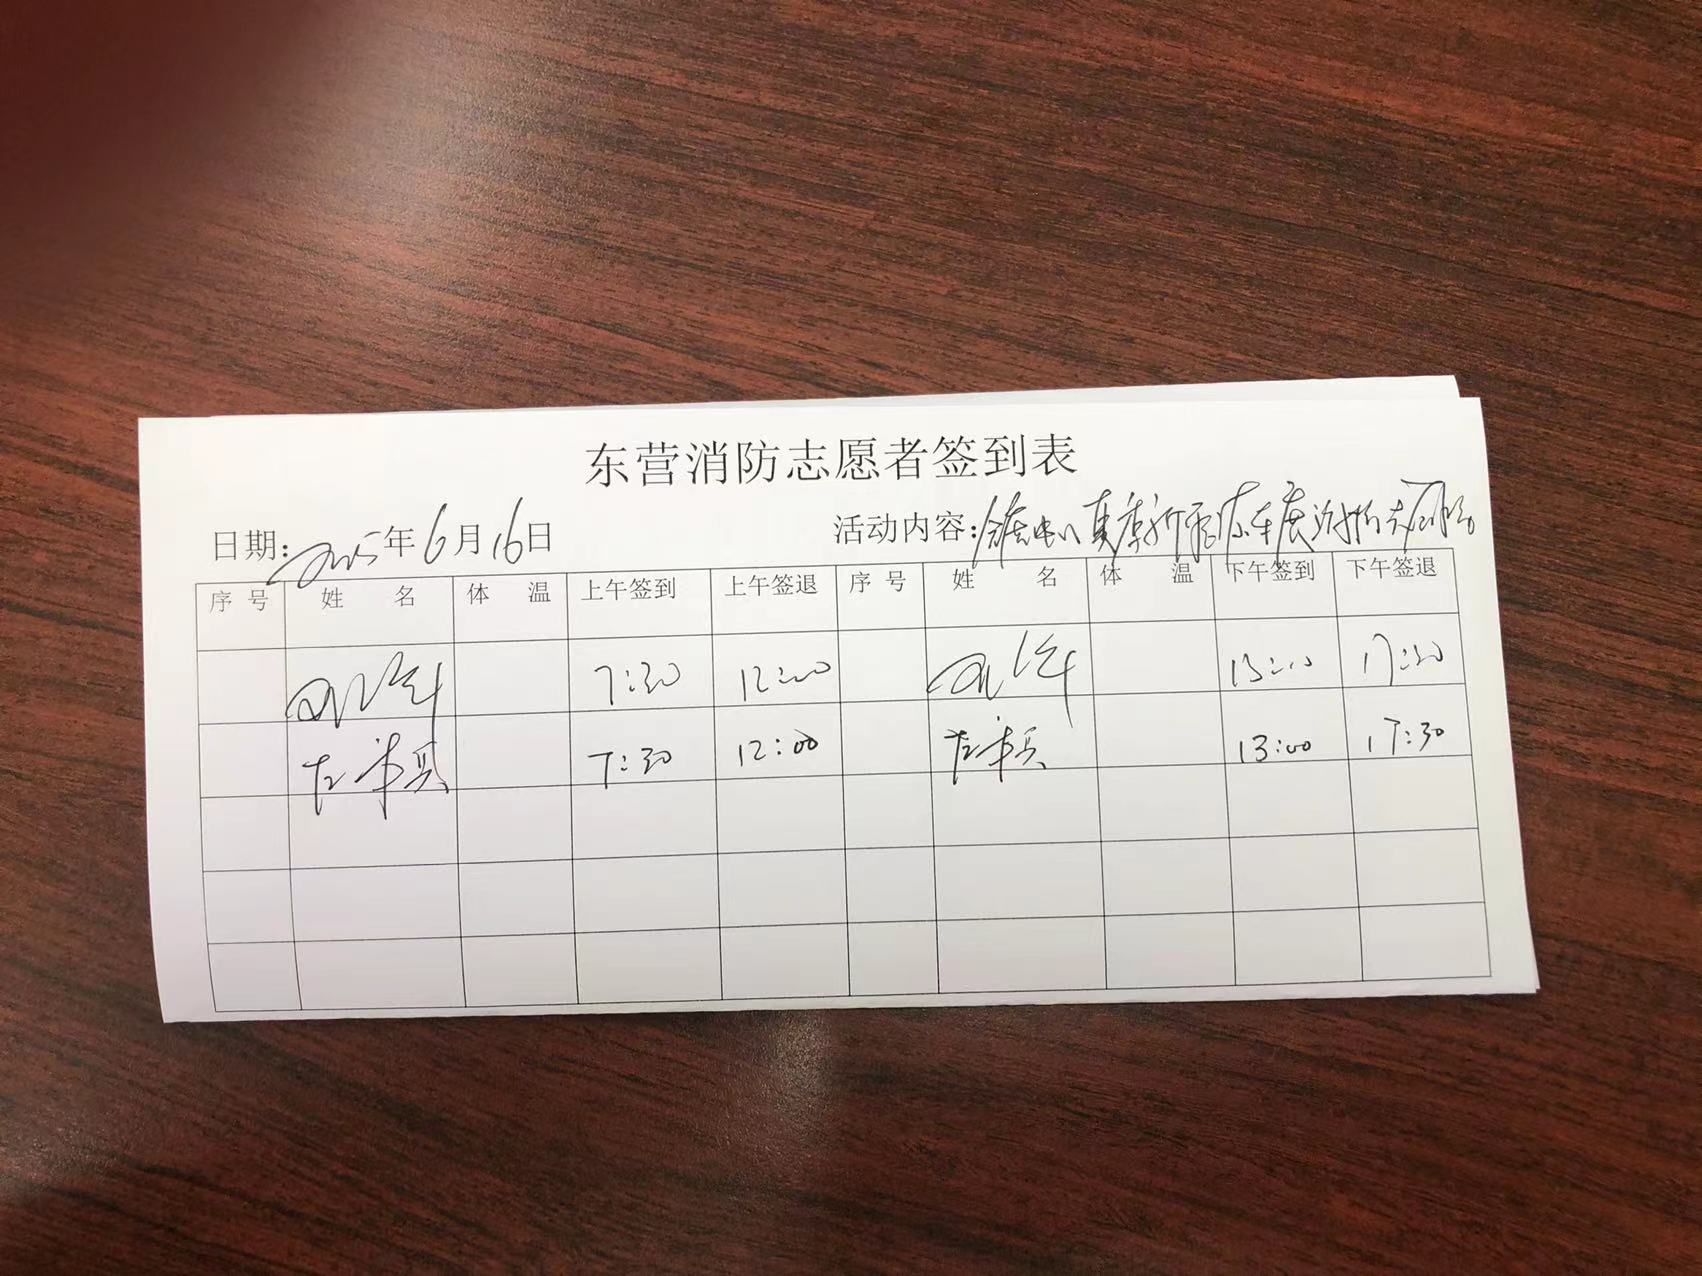 东营消防志愿者签到表
日期:2025年6月16日 活动内容:夏季新能源车展消防志愿服务
序号 姓名 体温 上午签到 上午签退 序号 姓名 体温 下午签到 下午签退
7:30 12:00 13:00 17:30
7:30 12:00 13:00 17:30